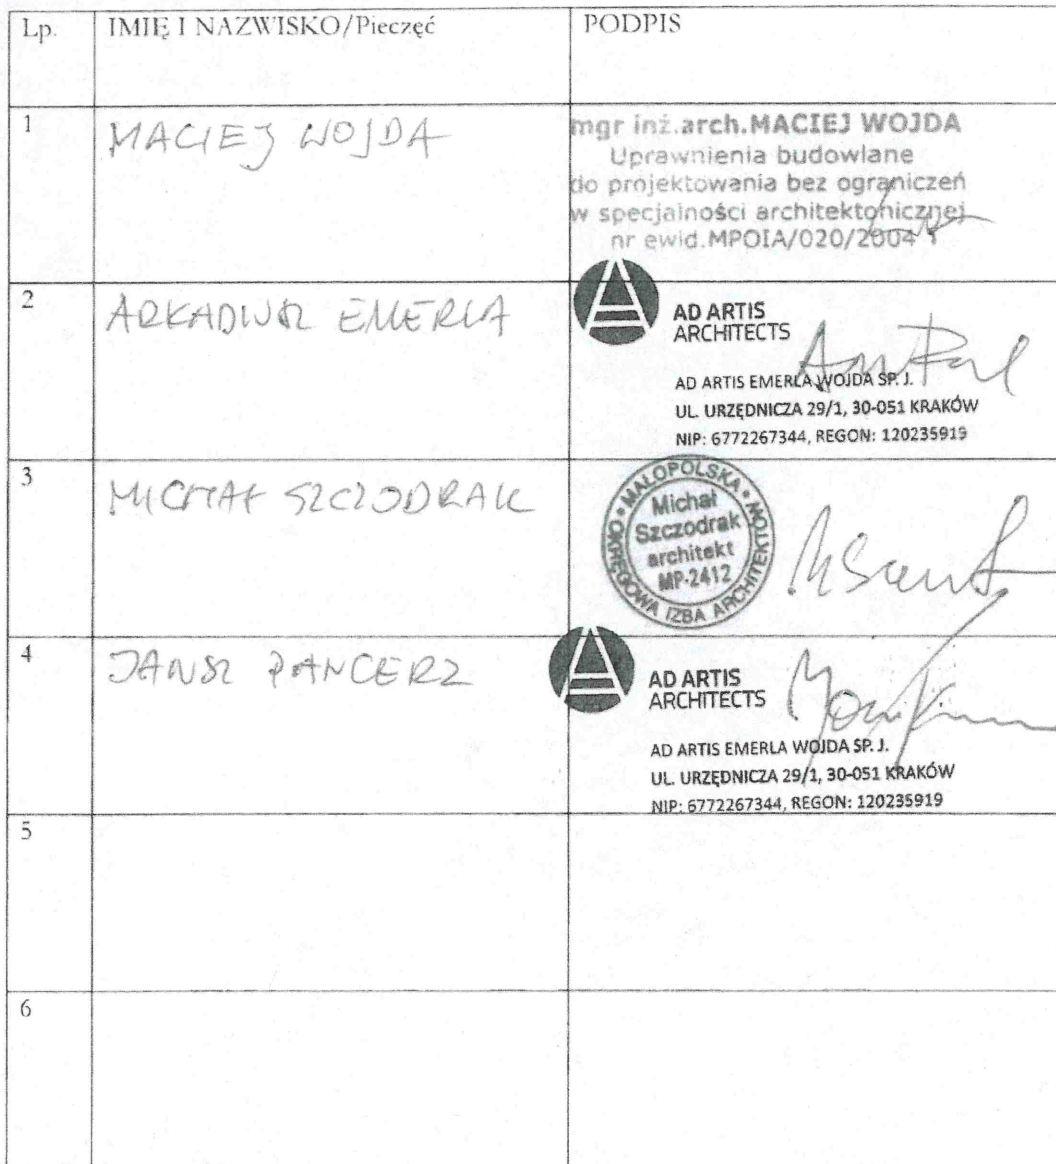 Lp. IMIĘ I NAZWISKO/Pieczęć PODPIS
1 MACIEJ WOJDA
mgr inż.arch.MACIEJ WOJDA
Uprawnienia budowlane
do projektowania bez ograniczeń
w specjalności architektonicznej
nr ewid.MPOIA/020/2004
2 ARKADIUSZ EMERLA
AD ARTIS
ARCHITECTS
AD ARTIS EMERLA WOJDA SP. J.
UL. URZĘDNICZA 29/1, 30-051 KRAKÓW
NIP: 6772267344, REGON: 120235919
3 MICHAŁ SZCZODRAK
MAŁOPOLSKA OKRĘGOWA IZBA ARCHITEKTÓW
Michał
Szczodrak
architekt
MP-2412
4 JANUSZ PANCERZ
AD ARTIS
ARCHITECTS
AD ARTIS EMERLA WOJDA SP. J.
UL. URZĘDNICZA 29/1, 30-051 KRAKÓW
NIP: 6772267344, REGON: 120235919
5
6